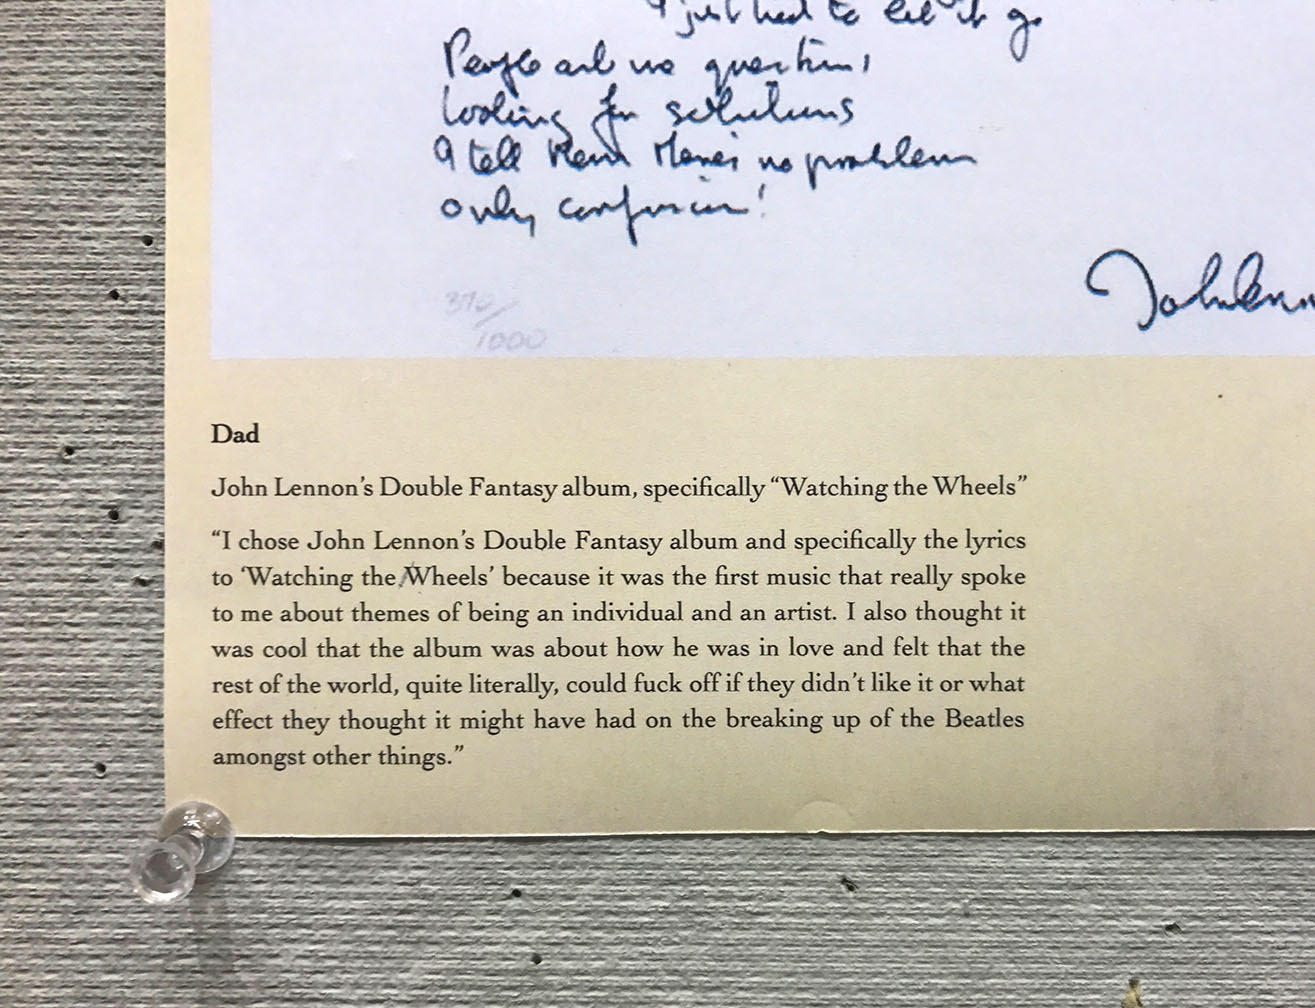 I just had to let it go
People ask me questions
looking for solutions
I tell them there's no problem
only confusion!
370/1000
John Lenn
Dad
John Lennon's Double Fantasy album, specifically “Watching the Wheels”
“I chose John Lennon's Double Fantasy album and specifically the lyrics
to ‘Watching the Wheels’ because it was the first music that really spoke
to me about themes of being an individual and an artist. I also thought it
was cool that the album was about how he was in love and felt that the
rest of the world, quite literally, could fuck off if they didn't like it or what
effect they thought it might have had on the breaking up of the Beatles
amongst other things.”